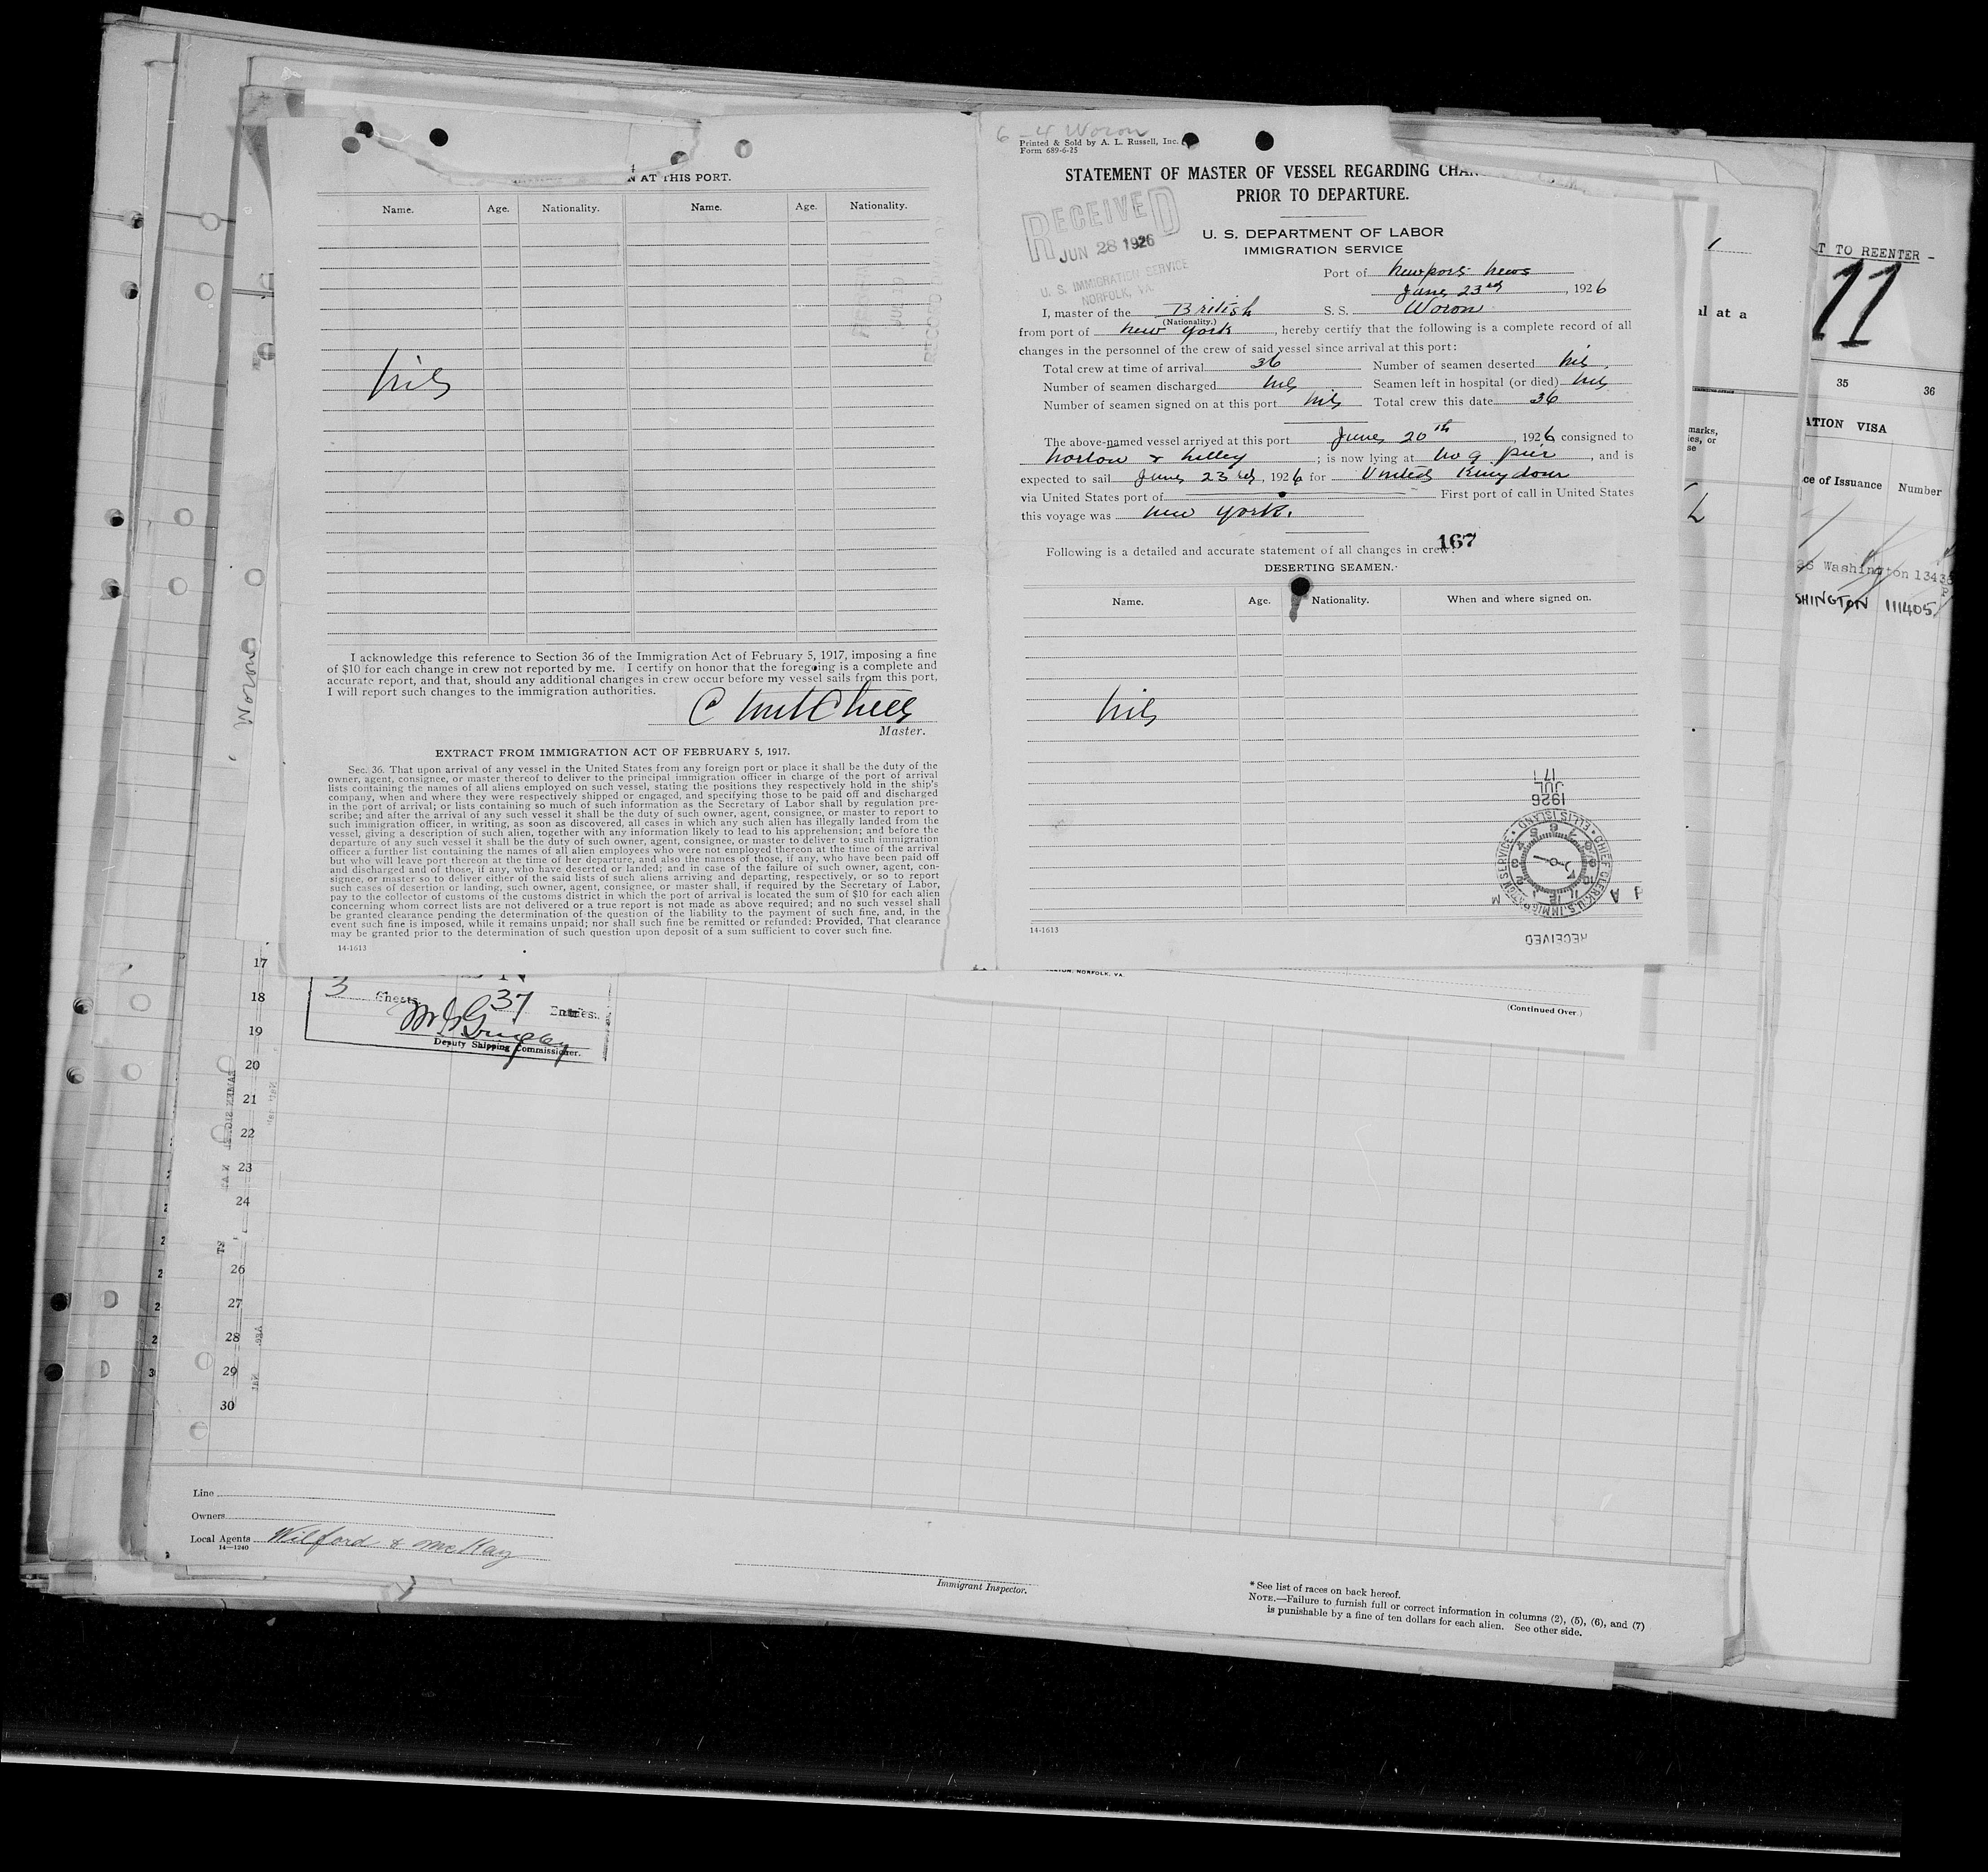 N AT THIS PORT.
Name. Age. Nationality. Name. Age. Nationality.
nil
I acknowledge this reference to Section 36 of the Immigration Act of February 5, 1917, imposing a fine
of $10 for each change in crew not reported by me. I certify on honor that the foregoing is a complete and
accurate report, and that, should any additional changes in crew occur before my vessel sails from this port,
I will report such changes to the immigration authorities.
Master.
EXTRACT FROM IMMIGRATION ACT OF FEBRUARY 5, 1917.
Sec. 36. That upon arrival of any vessel in the United States from any foreign port or place it shall be the duty of the
owner, agent, consignee, or master thereof to deliver to the principal immigration officer in charge of the port of arrival
lists containing the names of all aliens employed on such vessel, stating the positions they respectively hold in the ship's
company, when and where they were respectively shipped or engaged, and specifying those to be paid off and discharged
in the port of arrival; or lists containing so much of such information as the Secretary of Labor shall by regulation pre-
scribe; and after the arrival of any such vessel it shall be the duty of such owner, agent, consignee, or master to report to
such immigration officer, in writing, as soon as discovered, all cases in which any such alien has illegally landed from the
vessel, giving a description of such alien, together with any information likely to lead to his apprehension; and before the
departure of any such vessel it shall be the duty of such owner, agent, consignee, or master to deliver to such immigration
officer a further list containing the names of all alien employees who were not employed thereon at the time of the arrival
but who will leave port thereon at the time of her departure, and also the names of those, if any, who have been paid off
and discharged and of those, if any, who have deserted or landed; and in case of the failure of such owner, agent, con-
signee, or master so to deliver either of the said lists of such aliens arriving and departing, respectively, or so to report
such cases of desertion or landing, such owner, agent, consignee, or master shall, if required by the Secretary of Labor,
pay to the collector of customs of the customs district in which the port of arrival is located the sum of $10 for each alien
concerning whom correct lists are not delivered or a true report is not made as above required; and no such vessel shall
be granted clearance pending the determination of the question of the liability to the payment of such fine, and, in the
event such fine is imposed, while it remains unpaid; nor shall such fine be remitted or refunded: Provided, That clearance
may be granted prior to the determination of such question upon deposit of a sum sufficient to cover such fine.
14-1613
6-4 Woron
Printed & Sold by A. L. Russell, Inc.
Form 689-6-25
STATEMENT OF MASTER OF VESSEL REGARDING CHAN
PRIOR TO DEPARTURE.
RECEIVED
JUN 28 1926
U. S. IMMIGRATION SERVICE
NORFOLK, VA.
U. S. DEPARTMENT OF LABOR
IMMIGRATION SERVICE
Port of Newport News
June 23rd, 1926
I, master of the British S. S. Woron
(Nationality.)
from port of New York, hereby certify that the following is a complete record of all
changes in the personnel of the crew of said vessel since arrival at this port:
Total crew at time of arrival 36 Number of seamen deserted nil.
Number of seamen discharged nil Seamen left in hospital (or died) nil
Number of seamen signed on at this port nil Total crew this date 36
The above-named vessel arrived at this port June 20th, 1926 consigned to
Norton & Lilley; is now lying at No 9 pier, and is
expected to sail June 23rd, 1926 for United Kingdom
via United States port of First port of call in United States
this voyage was New York.
167
Following is a detailed and accurate statement of all changes in crew:
DESERTING SEAMEN.
Name. Age. Nationality. When and where signed on.
nil
1926
JUL
17
CHIEF CLERK, U.S. IMMIGRATION SERVICE • ELLIS ISLAND •
RECEIVED
14-1613
T TO REENTER -
11
al at a
35 36
ATION VISA
marks,
ies, or
se
ce of Issuance Number
Washington
SHINGTON 111405
Woron
NORFOLK, VA.
(Continued Over)
3 Sheets 37 Entries.
Deputy Shipping Commissioner.
17
18
19
20
21
22
23
24
26
27
28
29
30
Line
Owners
Local Agents Wilford & McKay
14—1240
Immigrant Inspector.
* See list of races on back hereof.
NOTE.—Failure to furnish full or correct information in columns (2), (5), (6), and (7)
is punishable by a fine of ten dollars for each alien. See other side.